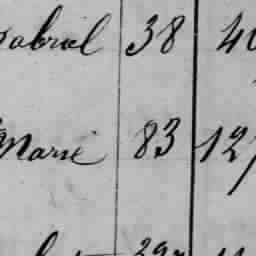 Gabriel 38 40
Marie 83 127